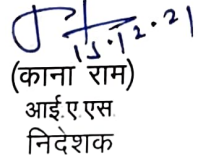 15.12.21
(काना राम)
आई.ए.एस.
निदेशक